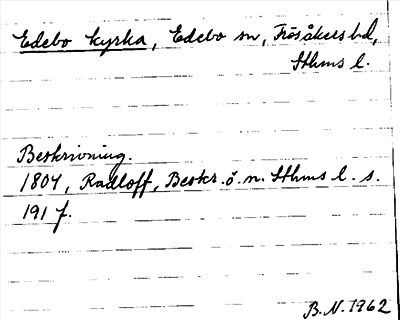 Edebo kyrka, Edebo sn, Frösåkers hd,
Sthms l.
Beskrivning.
1804, Radloff, Beskr. ö. n. Sthms l. s.
191 f.
B.N. 1962